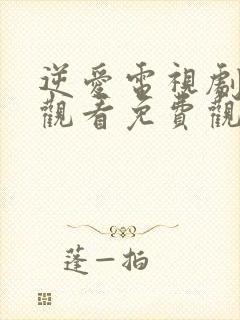 逆愛電視劇
觀看免費觀
蓬一拍